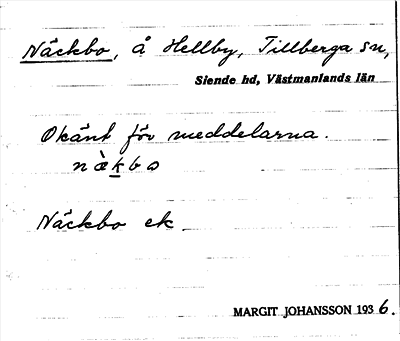 Näckbo, å Hellby, Tillberga sn,
Siende hd, Västmanlands län
Okänt för meddelarna.
nàkbo
Näckbo ek
MARGIT JOHANSSON 1936.